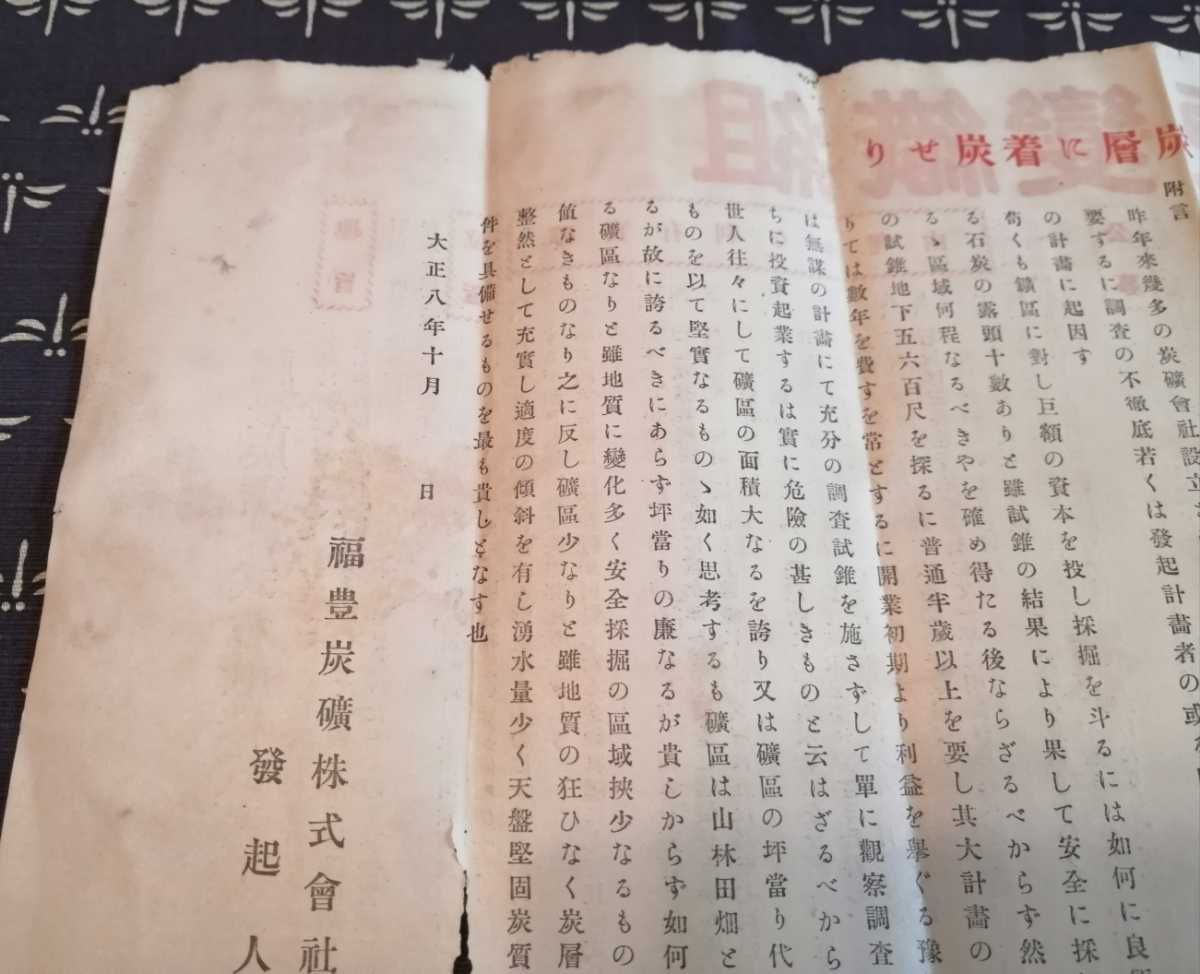 炭層に着炭せり
附言
昨年來幾多の炭礦會社設立
要するに調査の不徹底若くは發起計畫者の或
の計畫に起因す
苟くも鑛區に對し巨額の資本を投し採掘を斗るには如何に良
る石炭の露頭十數ありと雖試錐の結果により果して安全に採
るゝ區域何程なるべきやを確め得たる後ならざるべからず然
の試錐地下五六百尺を探るに普通半歲以上を要し其大計畫の
りては數年を費すを常とするに開業初期より利益を擧ぐる豫
は無謀の計畫にて充分の調査試錐を施さずして單に觀察調査
ちに投資起業するは實に危險の甚しきものと云はざるべから
世人往々にして礦區の面積大なるを誇り又は礦區の坪當り代
ものを以て堅實なるものゝ如く思考するも礦區は山林田畑と
るが故に誇るべきにあらず坪當りの廉なるが貴しからず如何
る礦區なりと雖地質に變化多く安全採掘の區域挾少なるもの
値なきものなり之に反し礦區少なりと雖地質の狂ひなく炭層
整然として充實し適度の傾斜を有し湧水量少く天盤堅固炭質
件を具備せるものを最も貴しとなす也
大正八年十月　　　日
福豊炭礦株式會社
發起人